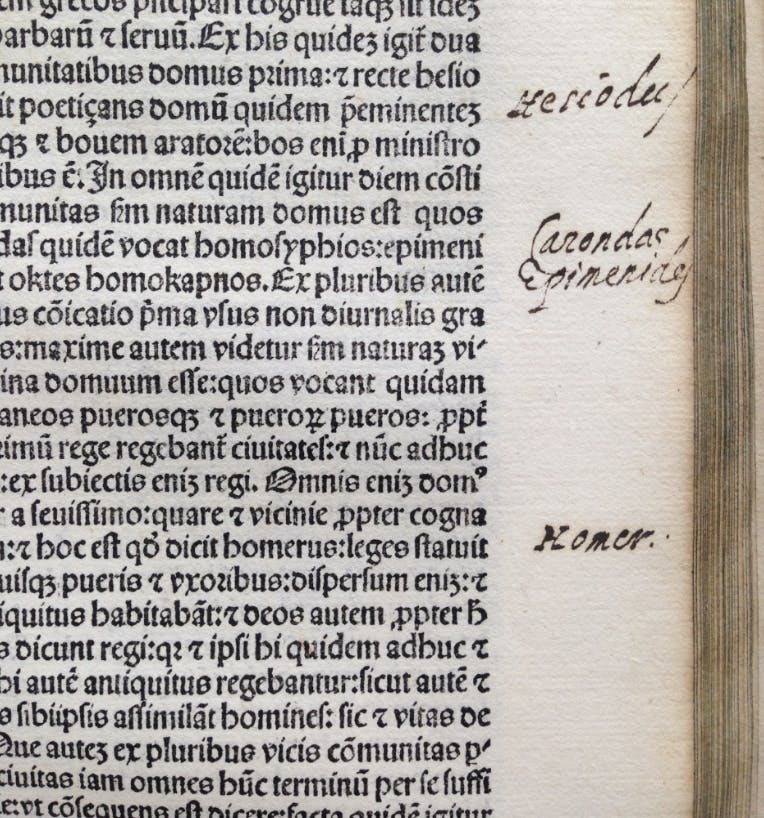 grecos prīcipari cōgrue taqȝ sit ideȝ
arbarū ⁊ ſeruū. Ex his quideȝ igit̄ dua
munitatibus domus prima:⁊ recte heſio
it poetiçans domū quidem p̄eminenteȝ
qȝ ⁊ bouem aratorē:bos eni ꝓ miniſtro
ibus ē. In omnē quidē igitur diem cōſti
munitas ẜm naturam domus eſt quos
daſ quidē vocat homoſyphios:epimeni
t oktes homokapnos. Ex pluribus autē
us cōicatio p̄ma vſus non diurnalis gra
s:maxime autem videtur ẜm naturaȝ vi
ina domuum eſſe:quos vocant quidam
aneos pueroſqȝ ⁊ pueroꝝ pueros: ꝓpt̄
rimū rege regebant̄ ciuitateſ:⁊ nūc adhuc
:ex ſubiectis eniȝ regi. Omnis eniȝ domꝰ
r a ſeuiſſimo:quare ⁊ vicinie ꝓpter cogna
:⁊ hoc eſt qđ dicit homerus:leges ſtatuit
uiſqȝ pueris ⁊ vxoribus:diſperſum eniȝ:⁊
iquitus habitabāt:⁊ deos autem ꝓpter ħ
s dicunt regi:qꝛ ⁊ ipſi hi quidem adhuc ⁊
hi autē antiquitus regebantur:ſicut autē ⁊
s ſibiipſis aſſimilāt homineſ: ſic ⁊ vitas de
Que auteȝ ex pluribus vicis cōmunitas p
ciuitas iam omnes hūc terminū per ſe ſuffi
e:vt cōſequens eſt dicere:facta quidē igitur
Hesiodus
Carondas
Epimenides
Homer.